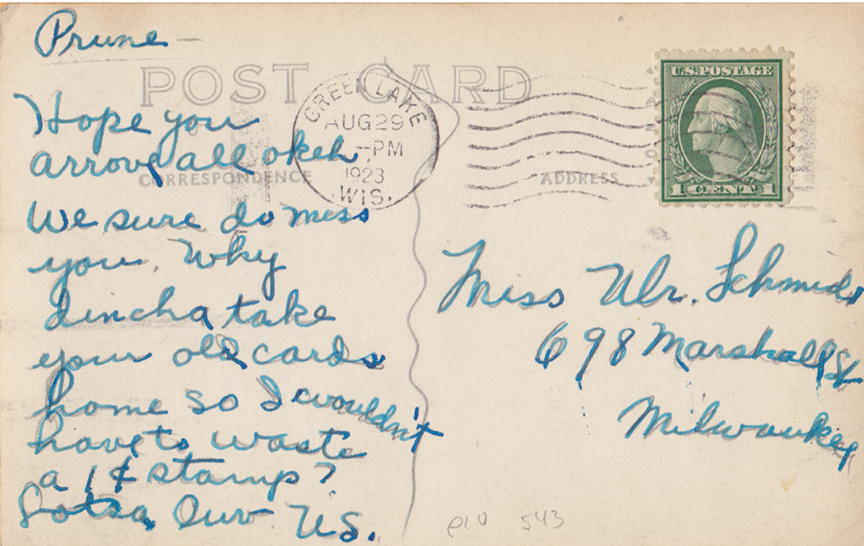 Prune—
POST CARD
GREEN LAKE
AUG 29
-PM
1923
WIS.
U.S. POSTAGE
1 CENT 1
CORRESPONDENCE
ADDRESS
Hope you
arrove all okeh,
We sure do miss
you. Why
dincha take
your old cards
home so I wouldn't
have to waste
a 1¢ stamp?
Lotsa Luv. US.
Miss Ulr. Schmidt
698 Marshall St
Milwaukey
543